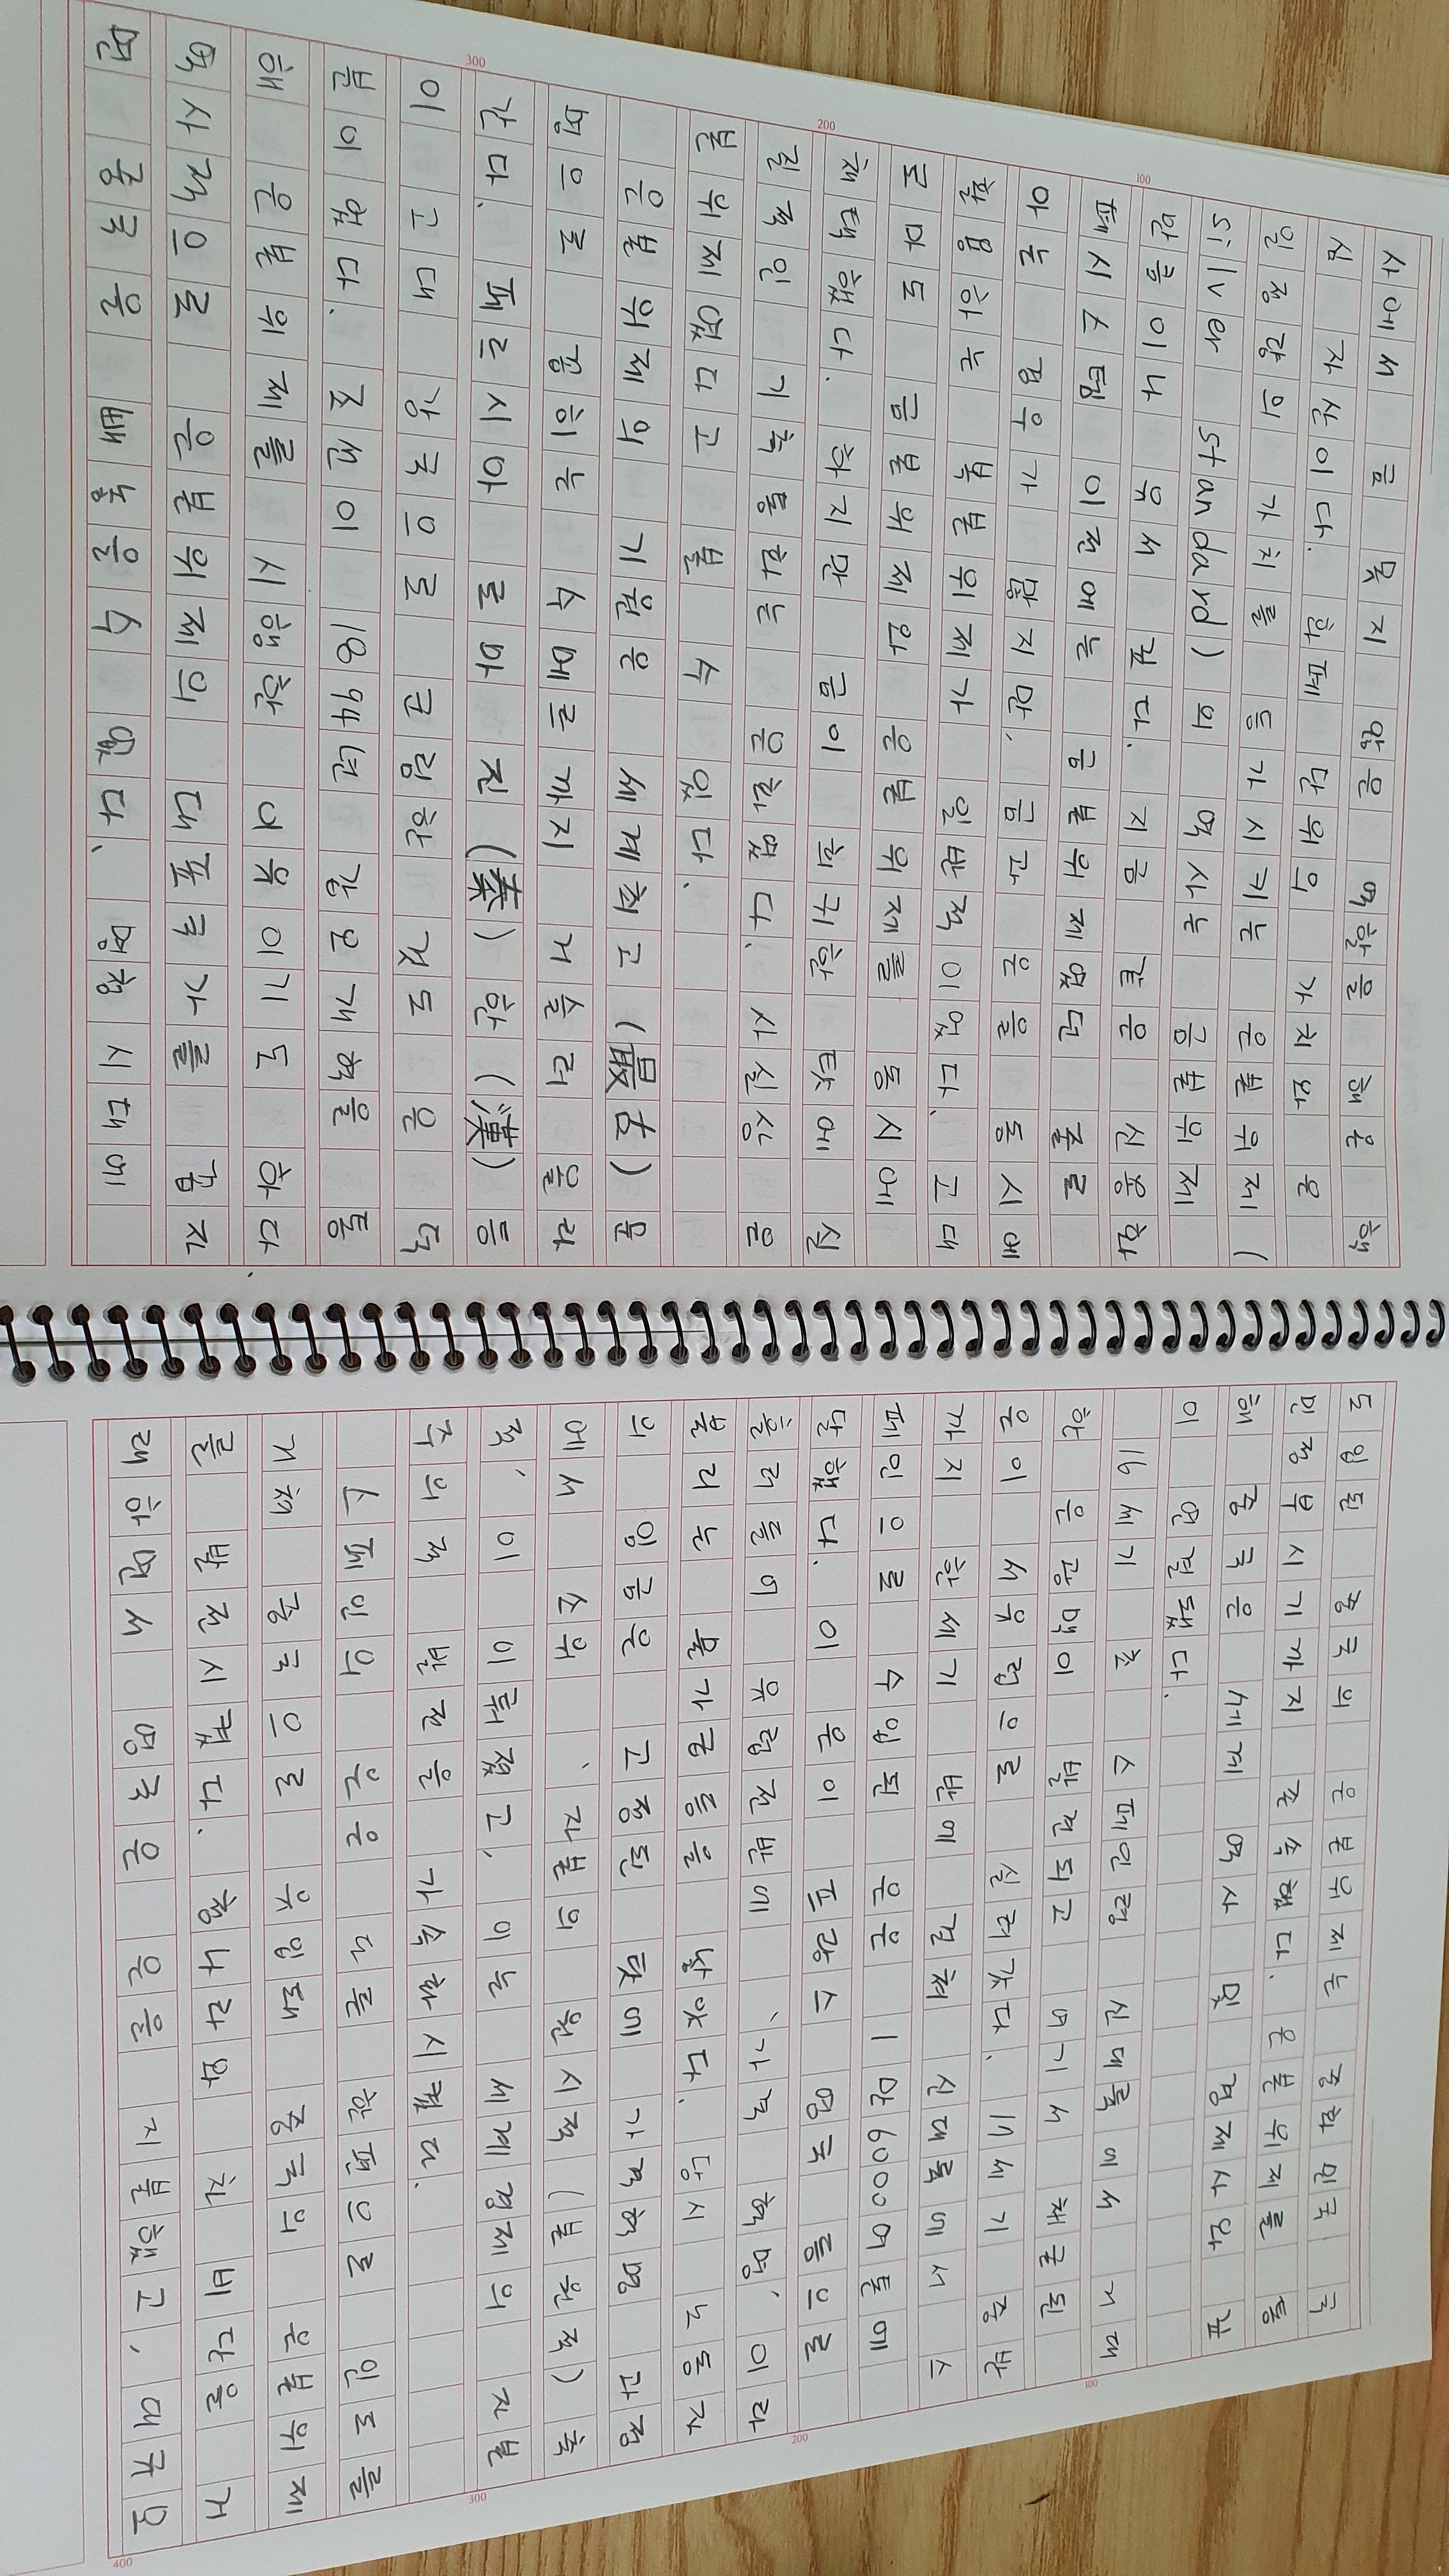 사에서 금 못지 않은 역할을 해온 핵
심 자산이다. 화폐 단위의 가치와 은
일정량의 가치를 등가시키는 은본위제(
silver standard)의 역사는 금본위제
만큼이나 유서 깊다. 지금 같은 신용화
폐시스템 이전에는 금본위제였던 줄로
아는 경우가 많지만. 금과 은을 동시에
활용하는 복본위제가 일반적이었다. 고대
로마도 금본위제와 은본위제를 동시에
채택했다. 하지만 금이 희귀한 탓에 실
질적인 기축통화는 은화였다. 사실상 은
본위제였다고 볼 수 있다.
은본위제의 기원은 세계최고(最古) 문
명으로 꼽히는 수메르까지 거슬러 올라
간다. 페르시아 로마 진(秦) 한(漢) 등
이 고대 강국으로 군림한 것도 은 덕
분이었다. 조선이 1894년 갑오개혁을 통
해 은본위제를 시행한 이유이기도 하다
역사적으로 은본위제의 대표국가를 꼽자
면 중국을 빼놓을 수 없다. 명청시대에
도입된 중국의 은본위제는 중화민국 국
민정부 시기까지 존속했다. 은본위제를 통
해 중국은 세계 역사 및 경제사와 깊
이 연결됐다.
16세기 초 스페인령 신대륙에서 거대
한 은광맥이 발견되고 여기서 채굴된
은이 서유럽으로 실려갔다. 17세기 중반
까지 한세기 반에 걸쳐 신대륙에서 스
페인으로 수입된 은은 1만6000여톤에
달했다. 이 은이 프랑스 영국 등으로
흘러들어 유럽전반에 '가격 혁명'이라
불리는 물가급등을 낳았다. 당시 노동자
의 임금은 고정된 탓에 가격혁명 과정
에서 소위 '자본의 원시적(본원적) 축
적'이 이뤄졌고, 이는 세계경제의 자본
주의적 발전을 가속화시켰다.
스페인의 은은 다른 한편으로 인도를
거쳐 중국으로 유입돼 중국의 은본위제
를 발전시켰다. 청나라와 차 비단을 거
래하면서 영국은 은을 지불했고, 대규모